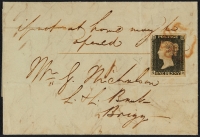 if not at home may be
opened
Mr G. Nicholson
L & L Bank
Brigg